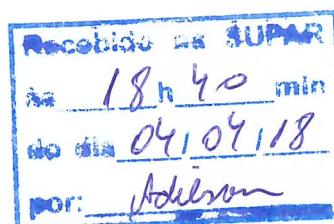 Recebido na SUPAR
às 18 h 40 min
do dia 04/04/18
por: Adilson